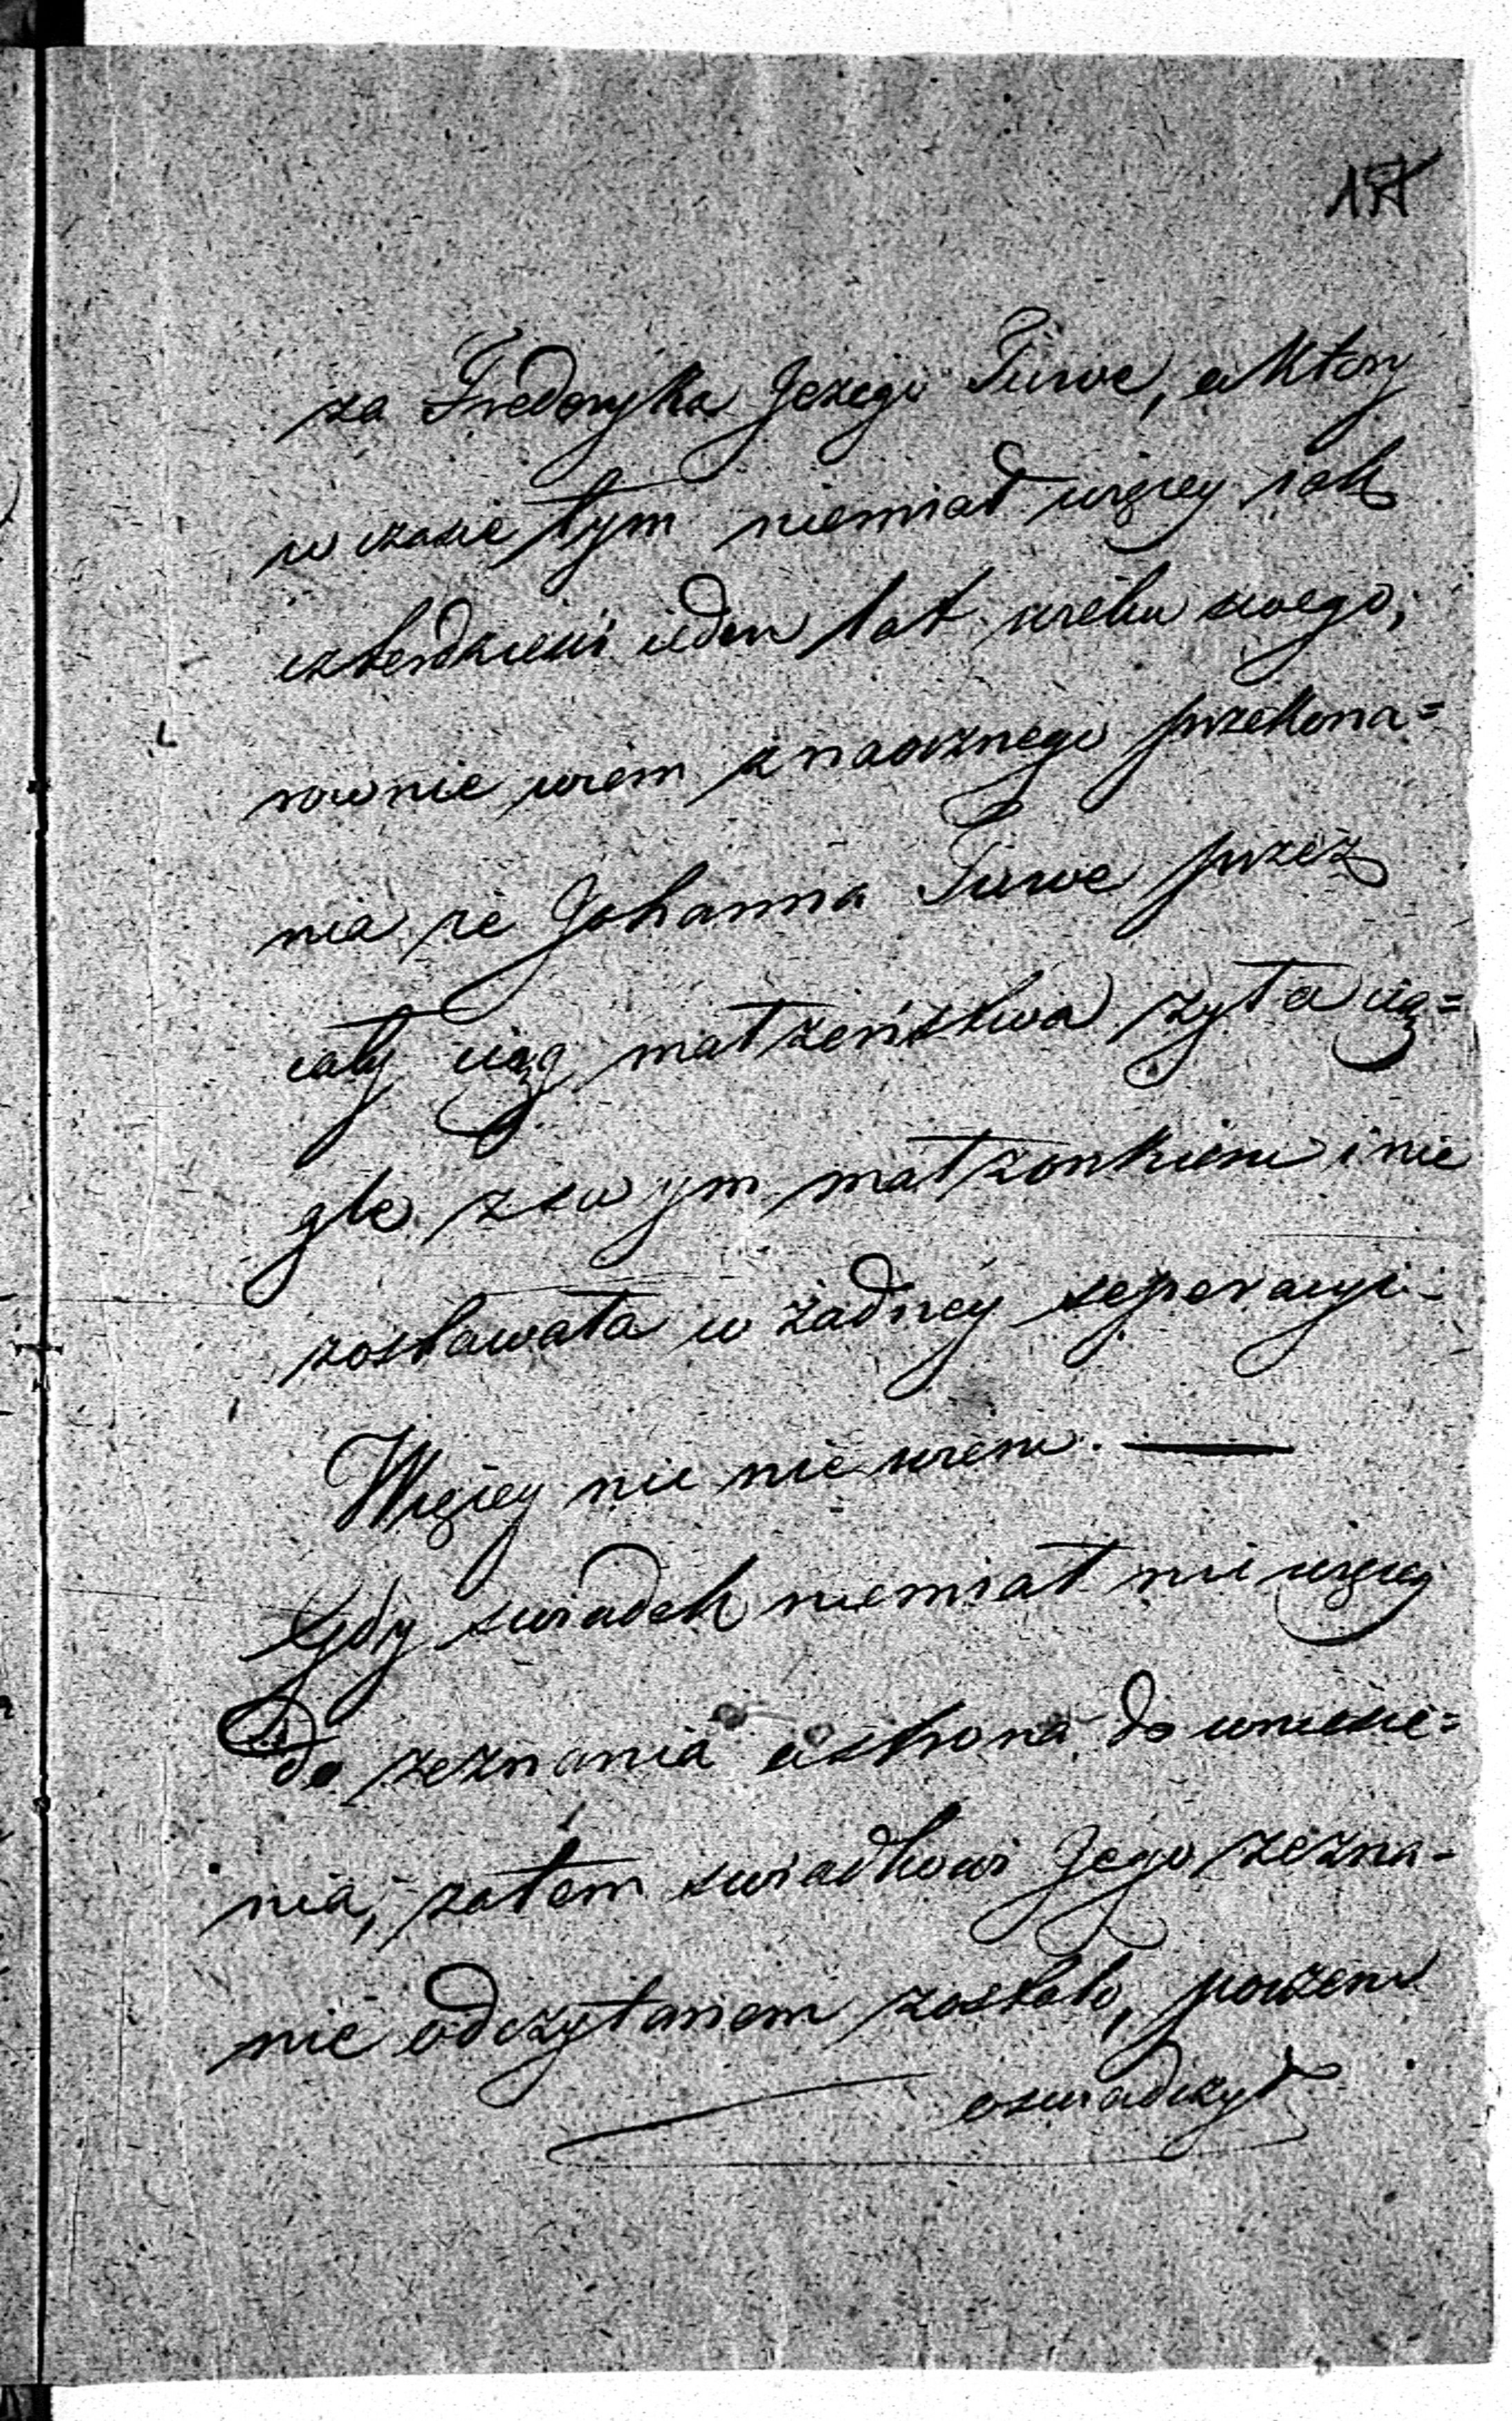 za Frederyka Jezego Turve, a ktory
w czasie tym niemiał więcey iak
czterdzieści ieden lat wieku swego;
rownie wiem z naocznego przekona=
nia że Johanna Turve przez
cały ciąg małżeństwa żyła cią=
gle z swym małżonkiem i nie
zostawała w żadney seperacyi.
Więcey nic nie wiem.
Gdy świadek niemiał nic więcey
do zeznania a strona do wniesie=
nia, zatem świadkowi Jego zezna=
nie odczytanem zostało, poczem
oświadczył